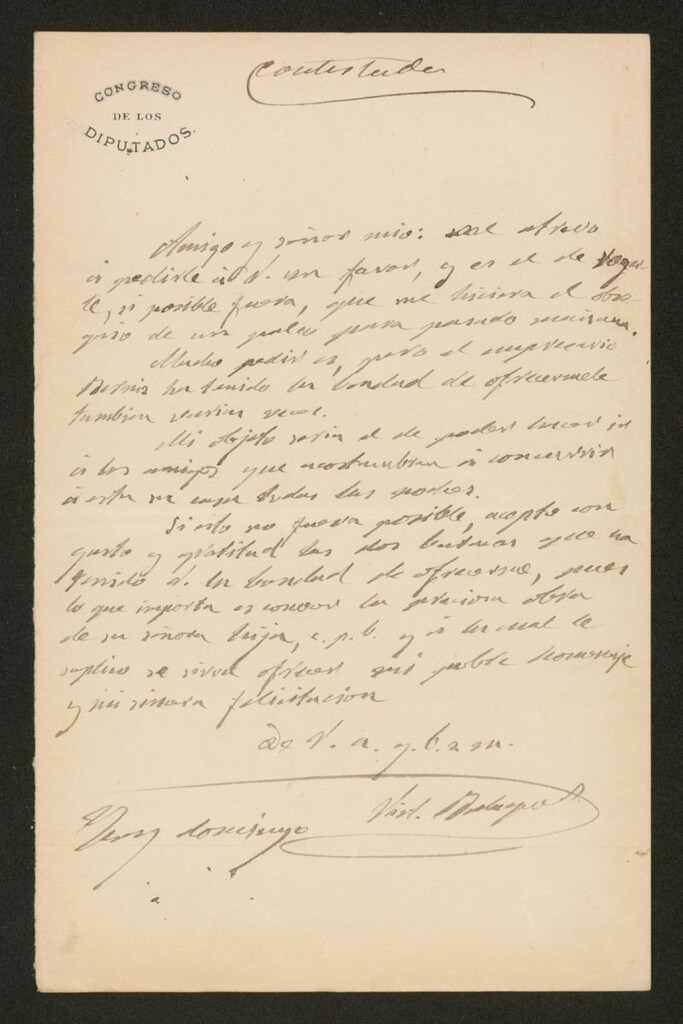 CONGRESO
DE LOS
DIPUTADOS.
Contestada
Amigo y señor mio: me atrevo
á pedirle á V. un favor, y es el de rogar-
le, si posible fuera, que me hiciera el obse-
quio de un palco para pasado mañana.
Mucho pedir es, pero el empresario
ha tenido la bondad de ofrecermele
tambien varias veces.
Mi objeto seria el de poder llevar
á los amigos que acostumbran á concurrir
á esta su casa todas las noches.
Si esto no fuera posible, acepto con
gusto y gratitud las dos butacas que ha
tenido V. la bondad de ofrecerme, pues
lo que importa es conocer la preciosa obra
de su señora hija, c. p. b. y á la cual le
suplico se sirva ofrecer mi pobre homenaje
y mi sincera felicitacion
De V. a. y. b. s m.
Vict. Balaguer
Hoy domingo